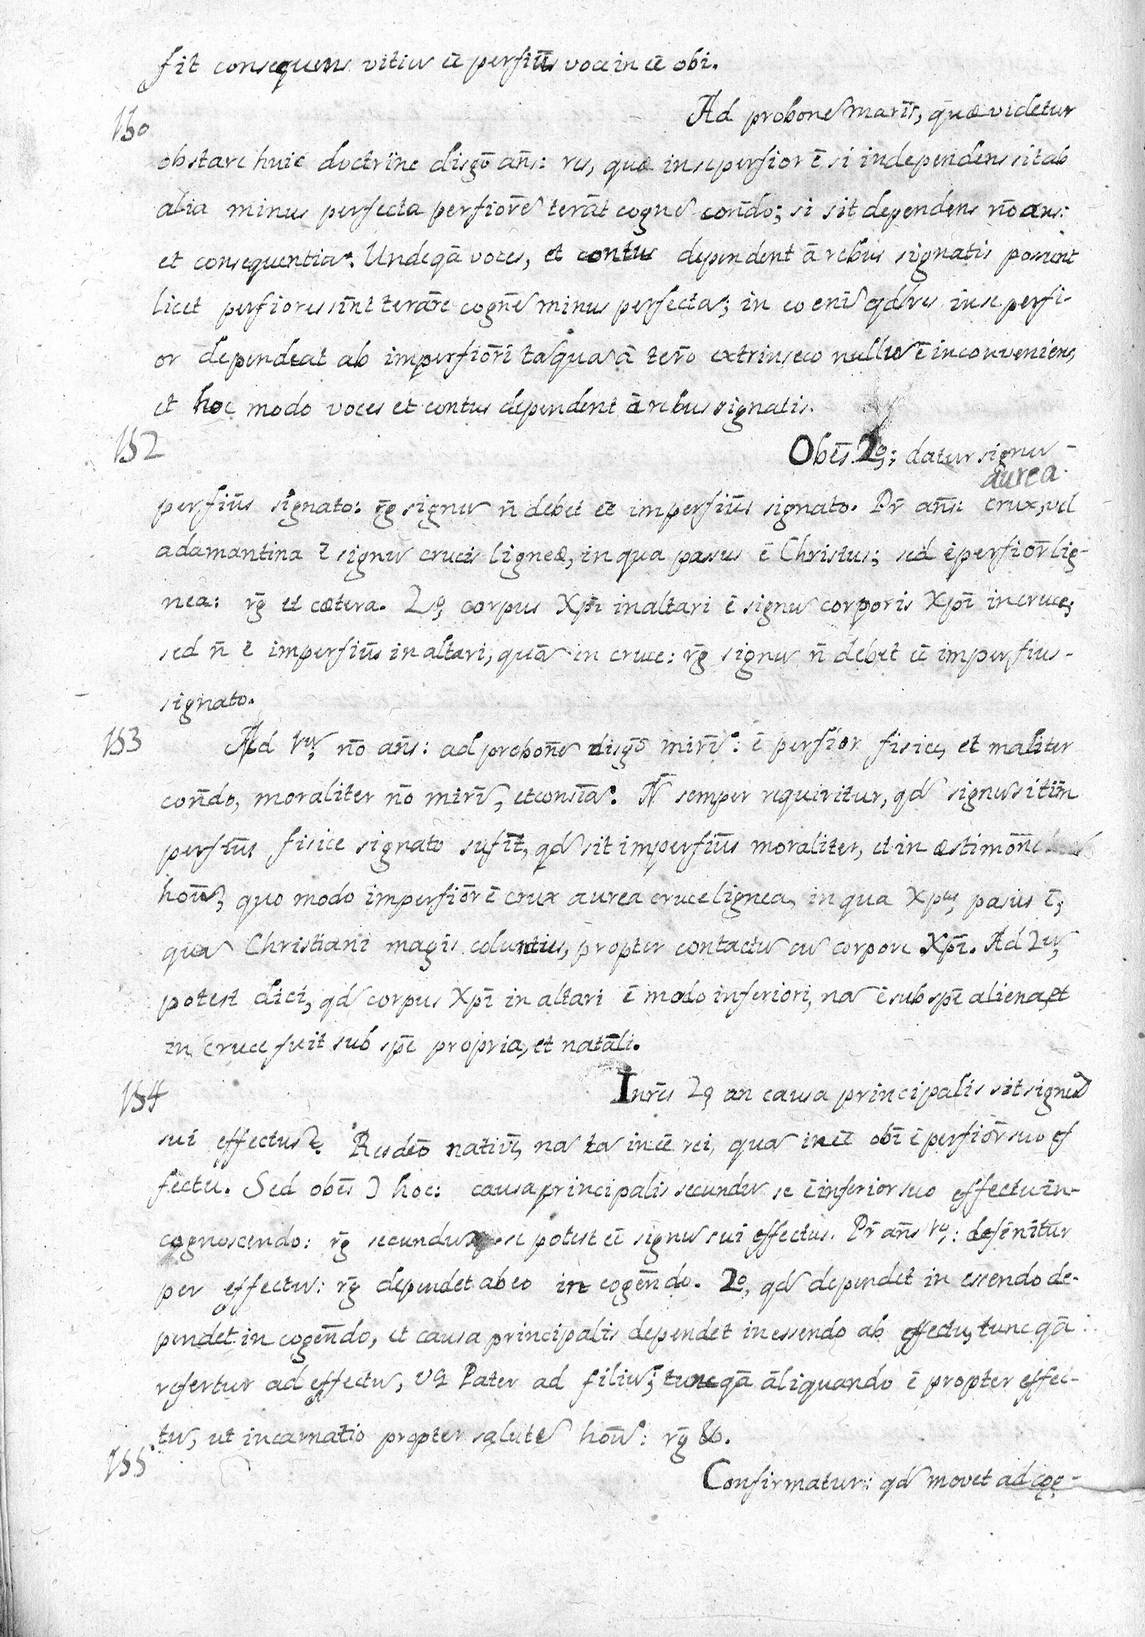 sit consequens vitiũ eẽ perfiũs voce in eẽ obi.
Ad probonẽ maris, quæ videtur
150
obstare huic doctrinæ disgõ añs: res, quæ in se perfior ẽ, si independens sit ab
alia minus perfecta perfiorẽ cognẽ conđo; si sit dependens nõ añs:
et consequentiã. Undeqã voces, et dependent ã rebus signatis possent
licet perfiores sint cognẽ minus perfectã; in eo enĩ qđ res in se perfi-
or dependeat ab imperfiõri tãquã ã terõ extrinseco nullũ ẽ inconveniens,
et hoc modo voces et dependent ã rebus signatis.
152
Obẽs 2º; datur signũ
perfiũs signato: rg̃ signũ ñ debet eẽ imperfiũs signato. Pr̃ añs: crux, vel
aurea
adamantina ẽ signũ crucis ligneæ, in qua passus ẽ Christus; sed ẽ perfiõr lig-
nea: rg̃ et cætera. 2º, corpus Xpĩ in altari ẽ signũ corporis Xpĩ in cruce;
sed ñ ẽ imperfiũs in altari, quã in cruce: rg̃ signũ ñ debet eẽ imperfius
signato.
153
Ad 1ũ, nõ añs: ad probonẽ disgõ minr̃ẽ: ẽ perfior fisice, et maliter
conđo, moraliter nõ minr̃ẽ, et consiã. Ñ semper requiritur, qđ signũ sit im̃
perfiũs fisice signato sufit, qđ sit imperfiũs moraliter, et in æstimonẽ
hoũ, quo modo imperfiõr ẽ crux aurea cruce lignea, in qua Xpus passus ẽ,
quã Christiani magis colunt, propter contactũ cũ corpore Xpĩ. Ad 2ũ,
potest dici, qđ corpus Xpĩ in altari ẽ modo inferiori, nã ẽ sub spẽ aliena, et
in cruce fuit sub spẽ propria, et natãli.
154
Inrẽs 2º an causa principalis sit signũ
sui effectus? Resdeõ nativẽ, nã tã in eẽ rei, quã in eẽ obĩ ẽ perfiõr suo ef
fectu. Sed obẽs hoc: causa principalis secundũ se ẽ inferior suo effectu in
cognoscendo: rg̃ secundũ se potest eẽ signũ sui effectus. Pr̃ añs 1º: definitur
per effectũ: rg̃ dependet ab eo in cogẽndo. 2º, qđ dependet in essendo de-
pendet in cogẽndo, et causa principalis dependet in essendo ab effectu, tunc qã
refertur ad effectũ, vg Pater ad filiũ; tunc qã ãliquando ẽ propter effec-
tũ, ut incarnatio propter salutẽ hoũ: rg̃ &c.
155
Confirmatur: qđ movet ad cog-